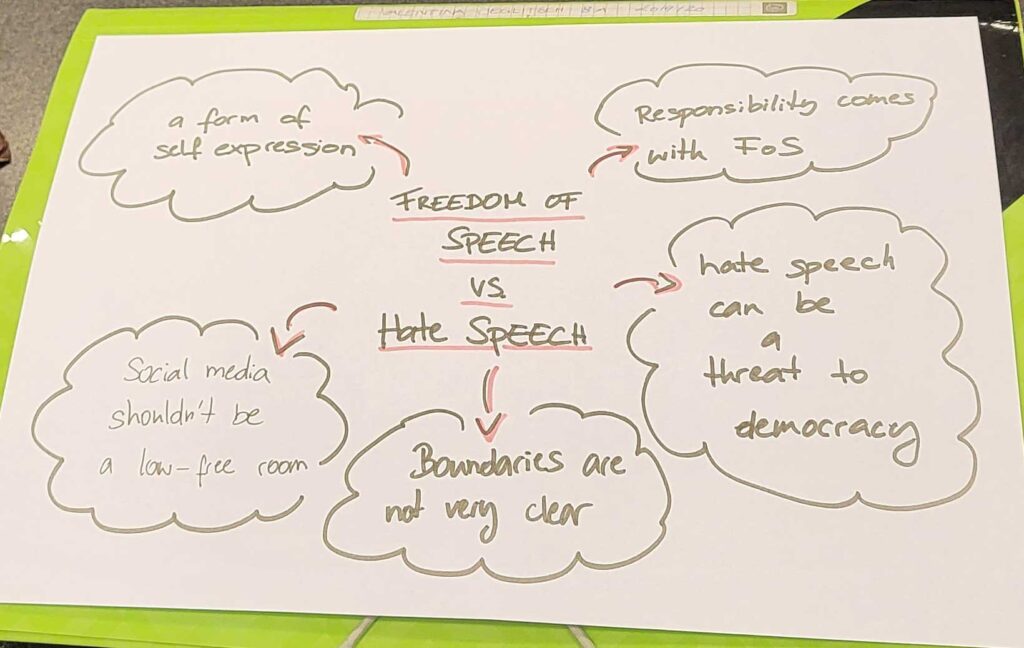 a form of
self expression
Responsibility comes
with FoS
FREEDOM OF
SPEECH
VS.
Hate SPEECH
hate speech
can be
a
threat to
democracy
Social media
shouldn't be
a low-free room
Boundaries are
not very clear